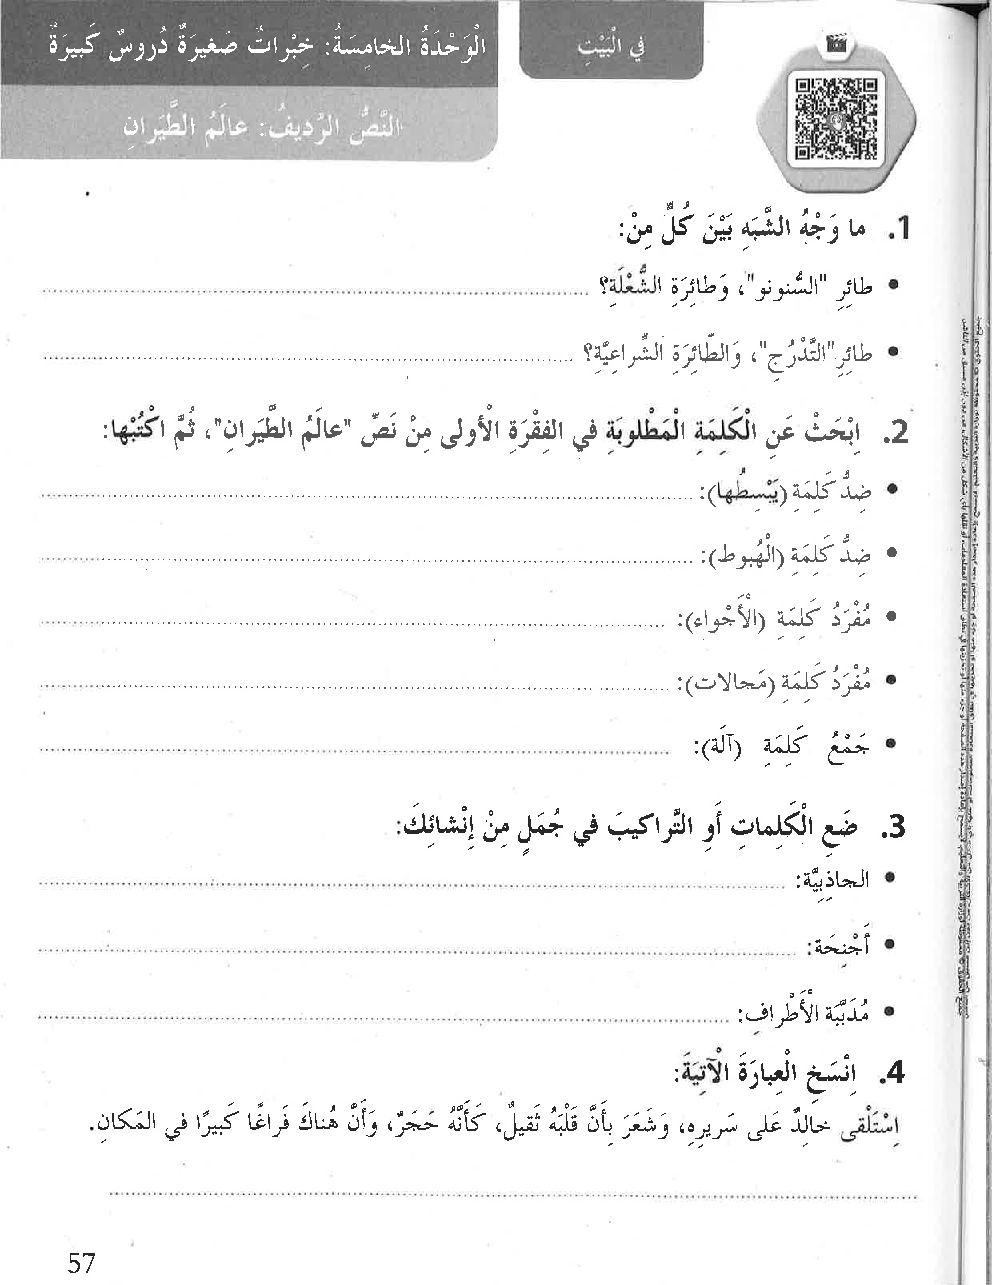 في الْبَيْتِ
الْوَحْدَةُ الخامِسَةُ: خِبْراتٌ صَغيرَةٌ دُروسٌ كَبيرَةٌ
النَّصُّ الرَّديفُ: عالَمُ الطَّيَرانِ
1. ما وَجْهُ الشَّبَهِ بَيْنَ كُلٍّ مِنْ:
• طائِرِ "السُّنونو"، وَطائِرَةِ الشُّعْلَةِ؟
• طائِرِ "التَّدْرُجِ"، وَالطّائِرَةِ الشِّراعِيَّةِ؟
2. اِبْحَثْ عَنِ الْكَلِمَةِ الْمَطْلوبَةِ في الفِقْرَةِ الْأولى مِنْ نَصِّ "عالَمُ الطَّيَرانِ"، ثُمَّ اكْتُبْها:
• ضِدُّ كَلِمَةِ (يَبْسِطُها):
• ضِدُّ كَلِمَةِ (الْهُبوط):
• مُفْرَدُ كَلِمَةِ (الْأَجْواء):
• مُفْرَدُ كَلِمَةِ (مَجالات):
• جَمْعُ كَلِمَةِ (آلَة):
3. ضَعِ الْكَلِماتِ أَوِ التَّراكيبَ في جُمَلٍ مِنْ إِنْشائِكَ:
• الجاذِبِيَّة:
• أَجْنِحَة:
• مُدَبَّبَة الْأَطْرافِ:
4. اِنْسَخِ الْعِبارَةَ الْآتِيَةَ:
اِسْتَلْقى خالِدٌ عَلى سَريرِهِ، وَشَعَرَ بِأَنَّ قَلْبَهُ ثَقيلٌ، كَأَنَّهُ حَجَرٌ، وَأَنَّ هُناكَ فَراغًا كَبيرًا في المَكانِ.
57